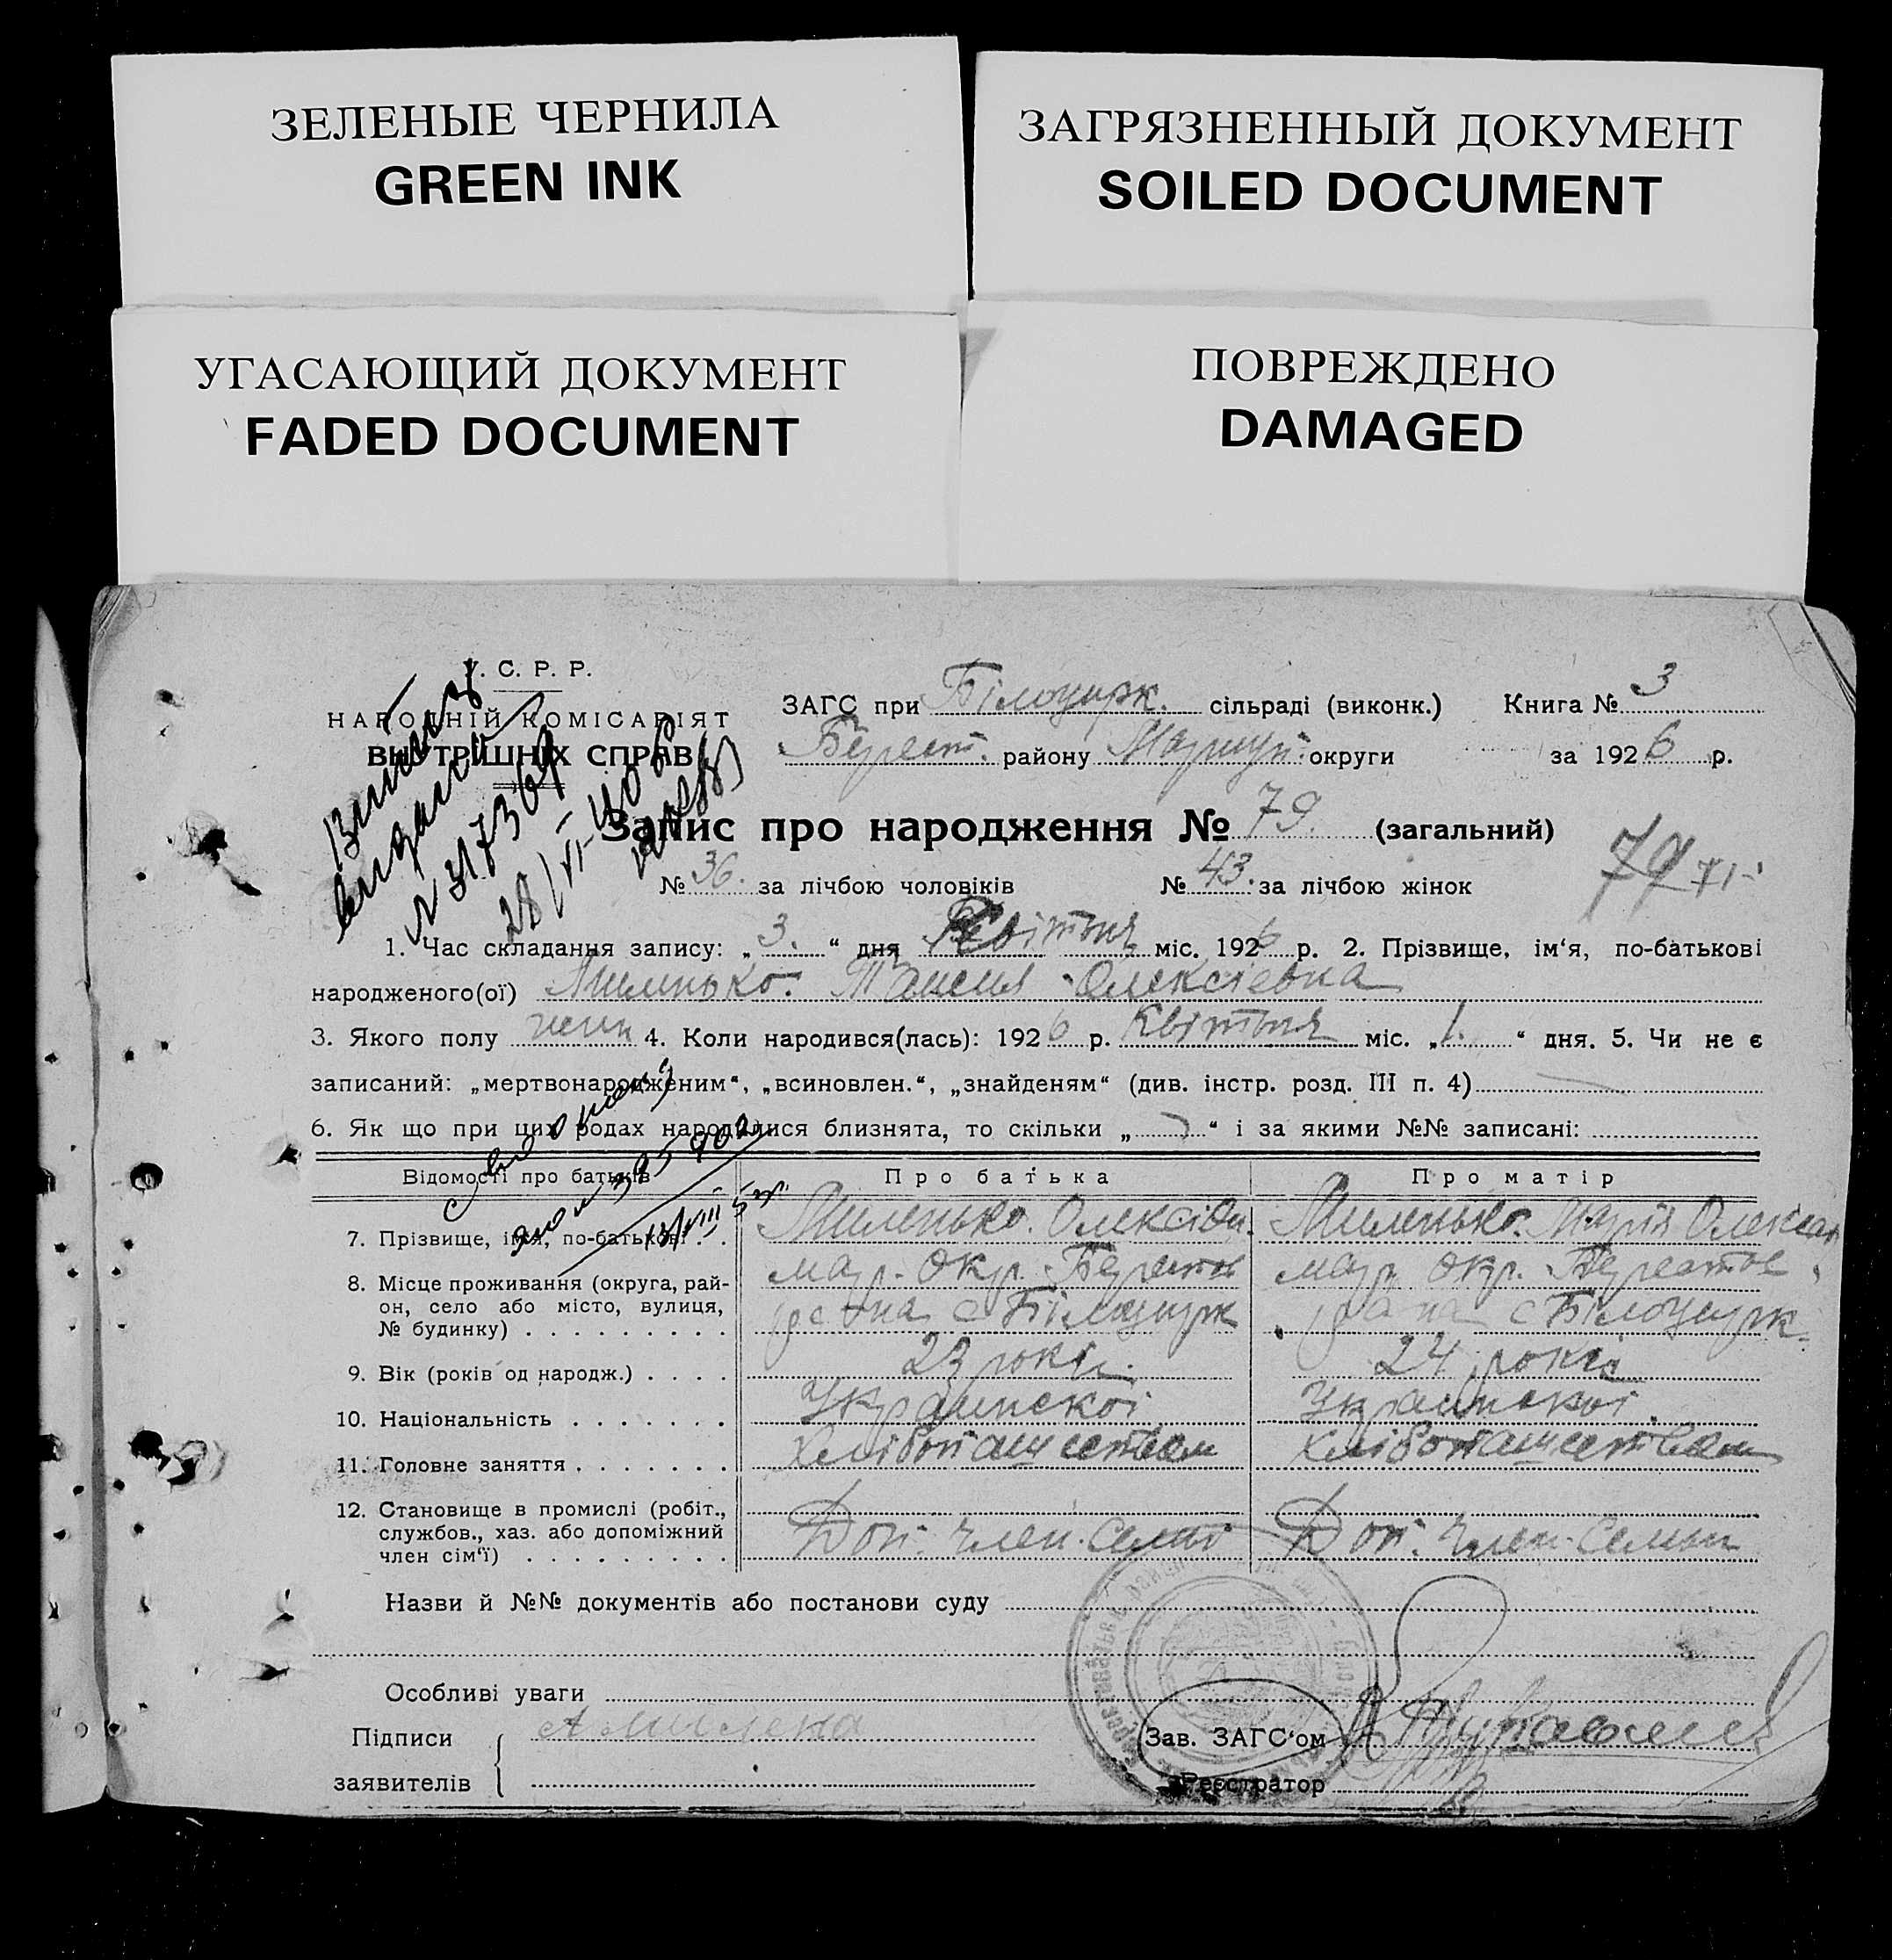 ЗЕЛЕНЫЕ ЧЕРНИЛА
GREEN INK
ЗАГРЯЗНЕННЫЙ ДОКУМЕНТ
SOILED DOCUMENT
УГАСАЮЩИЙ ДОКУМЕНТ
FADED DOCUMENT
ПОВРЕЖДЕНО
DAMAGED
У. С. Р. Р.
НАРОДНІЙ КОМІСАРІЯТ
ВНУТРІШНІХ СПРАВ
ЗАГС при Білоцирк. сільраді (виконк.) Книга № 3
Берест. району Маріуп. округи за 1926 р.
Запис про народження № 79. (загальний)
79
№ 36. за лічбою чоловіків № 43. за лічбою жінок
1. Час складання запису: „3.“ дня Квітня міс. 1926 р. 2. Прізвище, ім‘я, по-батькові
народженого(ої) Миленько. Таисия Олексієвна
3. Якого полу жин 4. Коли народився(лась): 1926 р. Квітня міс. „1.“ дня. 5. Чи не є
записаний: „мертвонародженим“, „всиновлен.“, „знайденям“ (див. інстр. розд. III п. 4)
6. Як що при цих родах народилися близнята, то скільки „ “ і за якими №№ записані:
Відомості про батьків Про батька Про матір
7. Прізвище, ім‘я, по-батькові . . Миленько. Олексій. Миленько. Марія
8. Місце проживання (округа, рай- мар. окр. Берестов мар. окр. Берестов
он, село або місто, вулиця, району с Білоцирк с Білоцирк.
№ будинку) . . . . . . . . .
9. Вік (років од народж.) . . . . 23 років. 24 років
10. Національність . . . . . . . Украинскоі Украинскоі
11. Головне заняття . . . . . . . Хлібопашеством Хлібопашеством
12. Становище в промислі (робіт.,
службов., хаз. або допоміжний Доп. член. Семьі Доп. член. Семьи
член сім‘ї) . . . . . . . . .
Назви й №№ документів або постанови суду
Особливі уваги
Підписи
Зав. ЗАГС‘ом
заявителів
Реєстратор